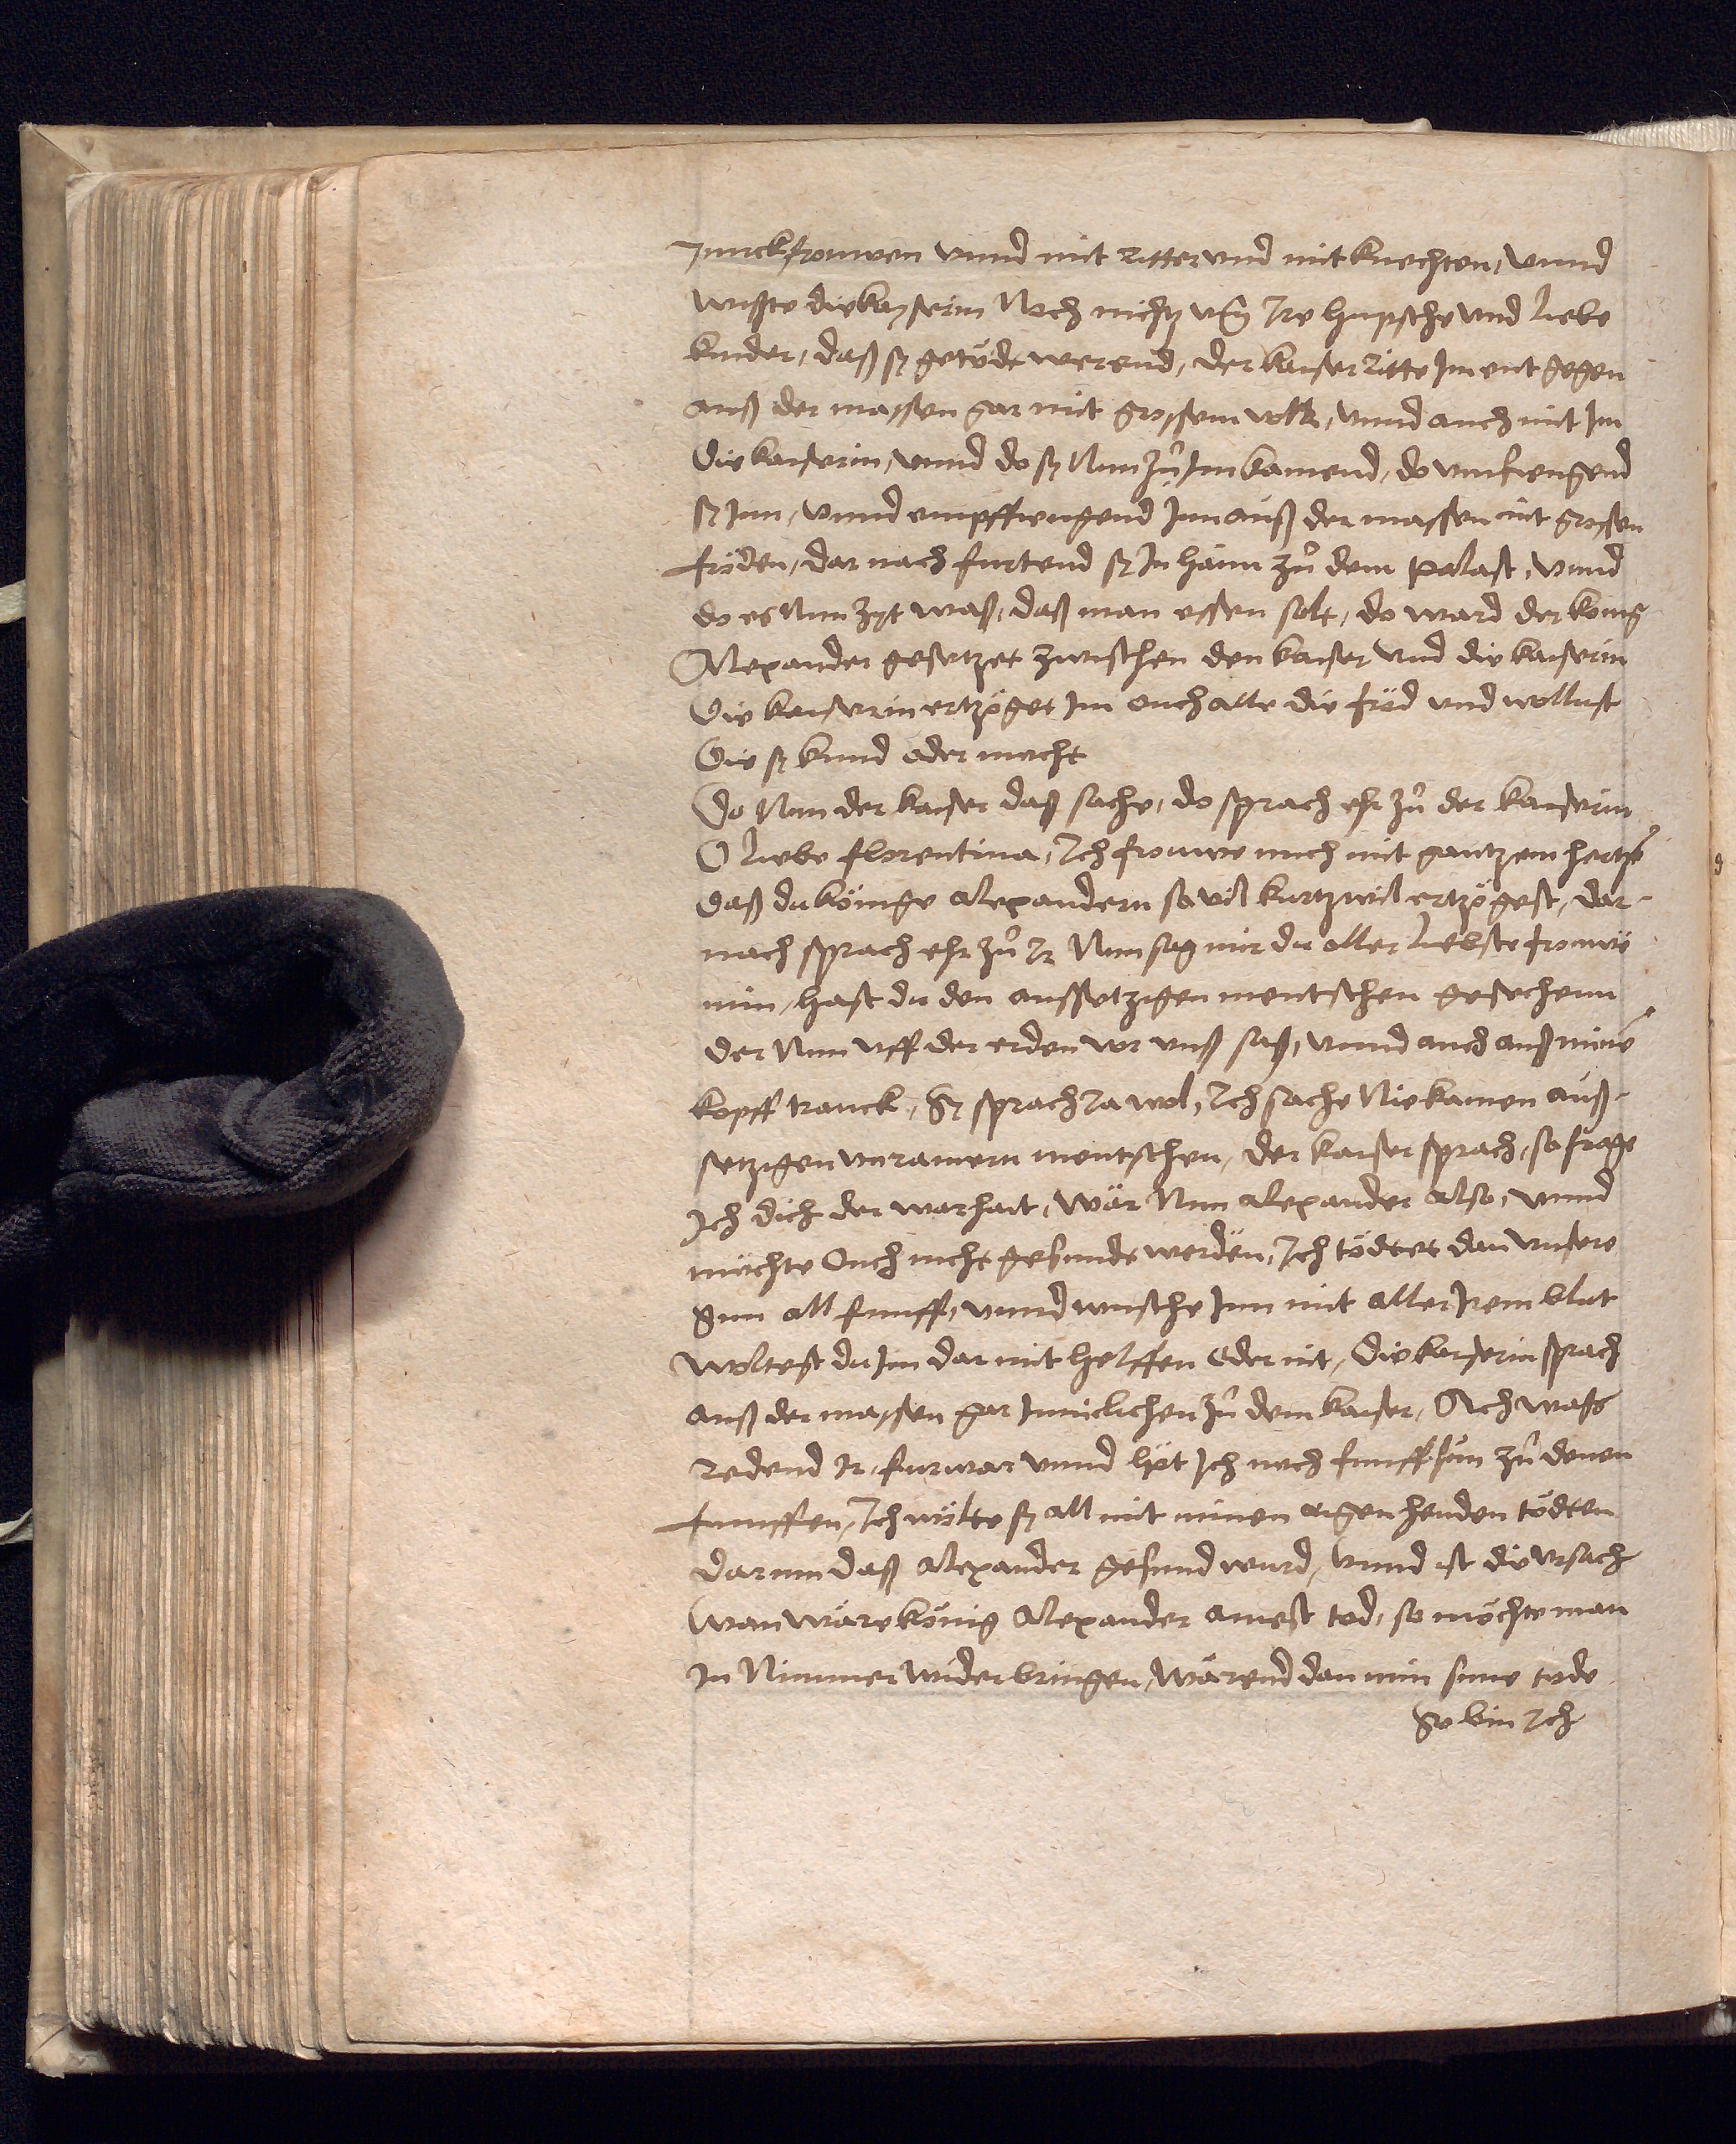 Junckfrouwen vnnd mit Ritter vnd mit knechten, vnnd
wisste die kayserin Noch nichtz vm Ire hupsche vnd Liebe
kinder, daß sy getödt werend, der kaiser Ritte Im entgegen
auß der massen gar mit grossem volk, vnnd auch mit Im
die kaiserin, vnnd do sy Nun zů Im kamend, do vmfiengend
sy Inn, vnnd empffiengend Inn auß der massen mit grosen
fröden, dar nach furtend sy In haim zů dem palast, vnnd
do es Nun zyt waß, daß man essen solt, do ward der konig
Alexander gesetzet zwischen den kaiser vnd die kaiserin
Die kaiserin ertzöget Im ouch alle die fröd vnd wollust
Die sy kund oder mocht
Do Nun der kaiser daß sache, do sprach ehr zů der kaiserin
O Liebe florentina, Ich frouwe mich mit gantzem hertzē
daß du könige Alexandern so vil kurtzwil ertzögest, dar-
nach sprach ehr zů Ir Nun sag mir du aller Liebste frouwe
min, hast du den aussetzigen mentschen gesechenn
der Nun vff der erden vor vnß saß, vnnd auch auß minē
kopff tranck, Sy sprach Ja wol, Ich sache Nie kainen auß-
setzigen vnrainern mentschen, der kaiser sprach, so frage
Ich dich der warhait, wär Nun Alexander also, vnnd
möchte Ouch nicht gesundt werden, Ich tödtet dan vnsere
Sun all funff, vnnd wusche Inn mit aller Irem blut
woltest du Im dar mit helffen oder nit, Die kaiserin sprach
auß der massen gar Inniclichen zů dem kaiser, Ach waß
redend Ir, furwar vnnd het Ich noch funff sün zů denen
funffen, Ich wölte sy all mit minen aigen henden tödten
darum daß Alexander gesund wurd, vnnd ist die vrsach
wan wäre könig Alexander ainest tod, so möchte man
In Nimmer wider bringen, wärend dan min sune tode
So bin Ich